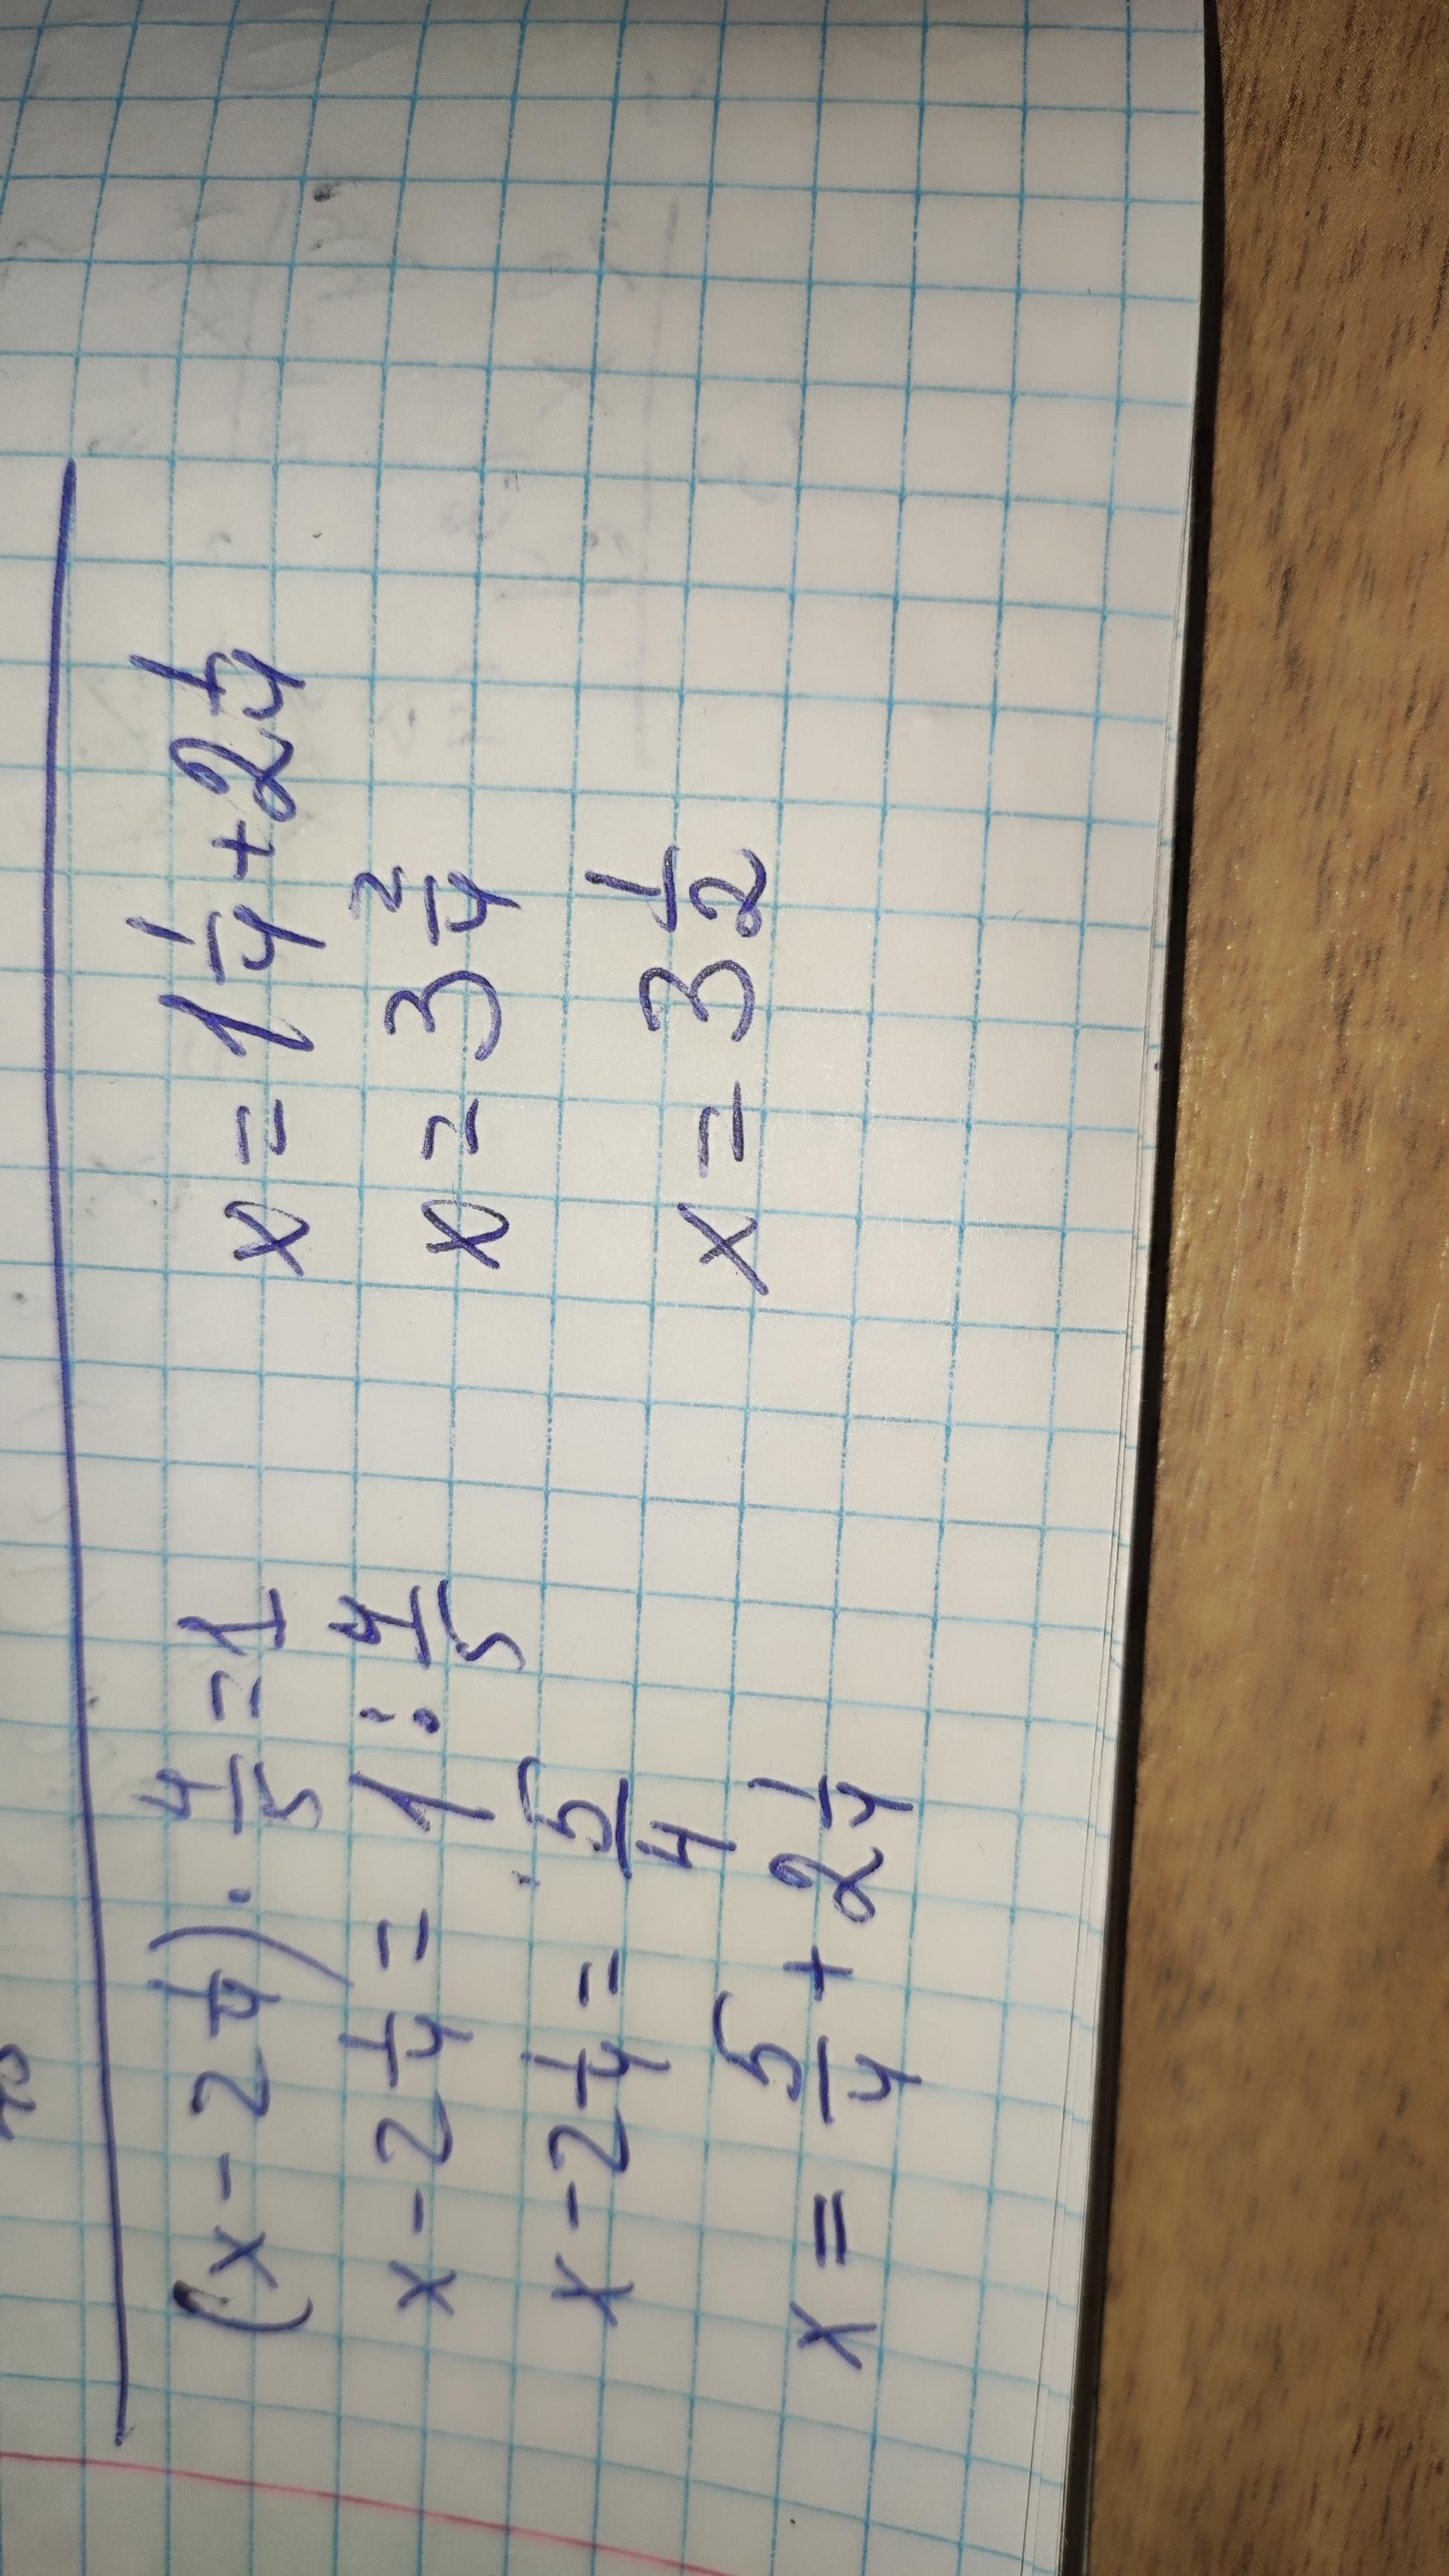 (x - 2 1/4) · 4/5 = 1
x - 2 1/4 = 1 : 4/5
x - 2 1/4 = 5/4
x = 5/4 + 2 1/4
x = 1 1/4 + 2 1/4
x = 3 2/4
x = 3 1/2